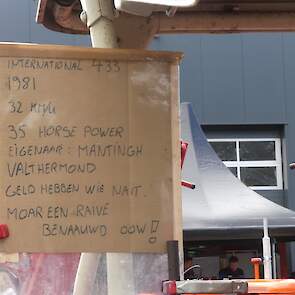 INTERNATIONAL 433
1981
32 KM/U
35 HORSE POWER
EIGENAAR: MANTINGH
VALTHERMOND
GELD HEBBEN WIE NAIT.
MOAR EEN RAIVE
BENAAUWD OOW!